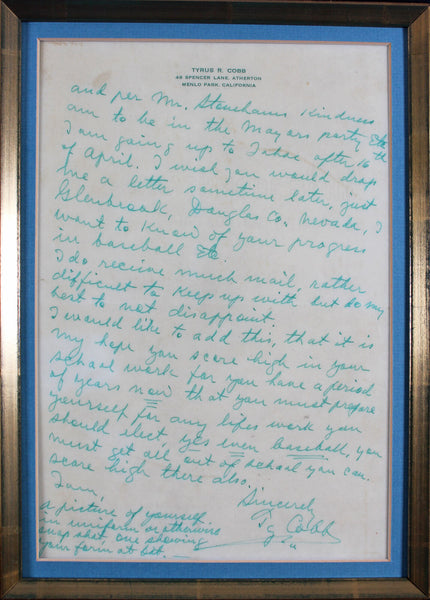 TYRUS R. COBB
48 SPENCER LANE, ATHERTON
MENLO PARK, CALIFORNIA
and per Mr. Stonehams Kindness
am to be in the Mayors party etc
I am going up to Tahoe after 16th
of April. I wish you would drop
me a letter sometime later, just
Glenbrook, Douglas Co., Nevada, I
want to know of your progress
in baseball etc.
I do receive much mail, rather
difficult to keep up with but do my
best to not disappoint.
I would like to add this, that it is
my hope you score high in your
school work for you have a period
of years now that you must prepare
yourself for any lifes work you
should elect, yes even baseball, you
must get all out of school you can.
score high there also.
I am,
Sincerely
Ty Cobb
a picture of yourself
in uniform or otherwise
snap shot, one showing
your form at bat.